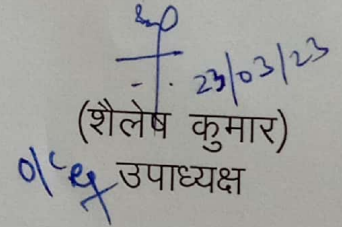 23/03/23
(शैलेष कुमार)
उपाध्यक्ष